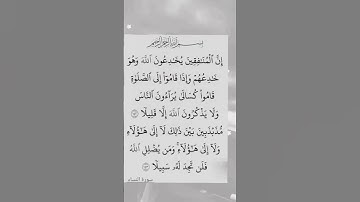 بسم الله الرحمن الرحيم
إِنَّ ٱلْمُنَٰفِقِينَ يُخَٰدِعُونَ ٱللَّهَ وَهُوَ
خَٰدِعُهُمْ وَإِذَا قَامُوٓا۟ إِلَى ٱلصَّلَوٰةِ
قَامُوا۟ كُسَالَىٰ يُرَآءُونَ ٱلنَّاسَ
وَلَا يَذْكُرُونَ ٱللَّهَ إِلَّا قَلِيلًا ١٤٢
مُّذَبْذَبِينَ بَيْنَ ذَٰلِكَ لَآ إِلَىٰ هَٰٓؤُلَآءِ
وَلَآ إِلَىٰ هَٰٓؤُلَآءِ ۚ وَمَن يُضْلِلِ ٱللَّهُ
فَلَن تَجِدَ لَهُۥ سَبِيلًا ١٤٣
سورة النساء